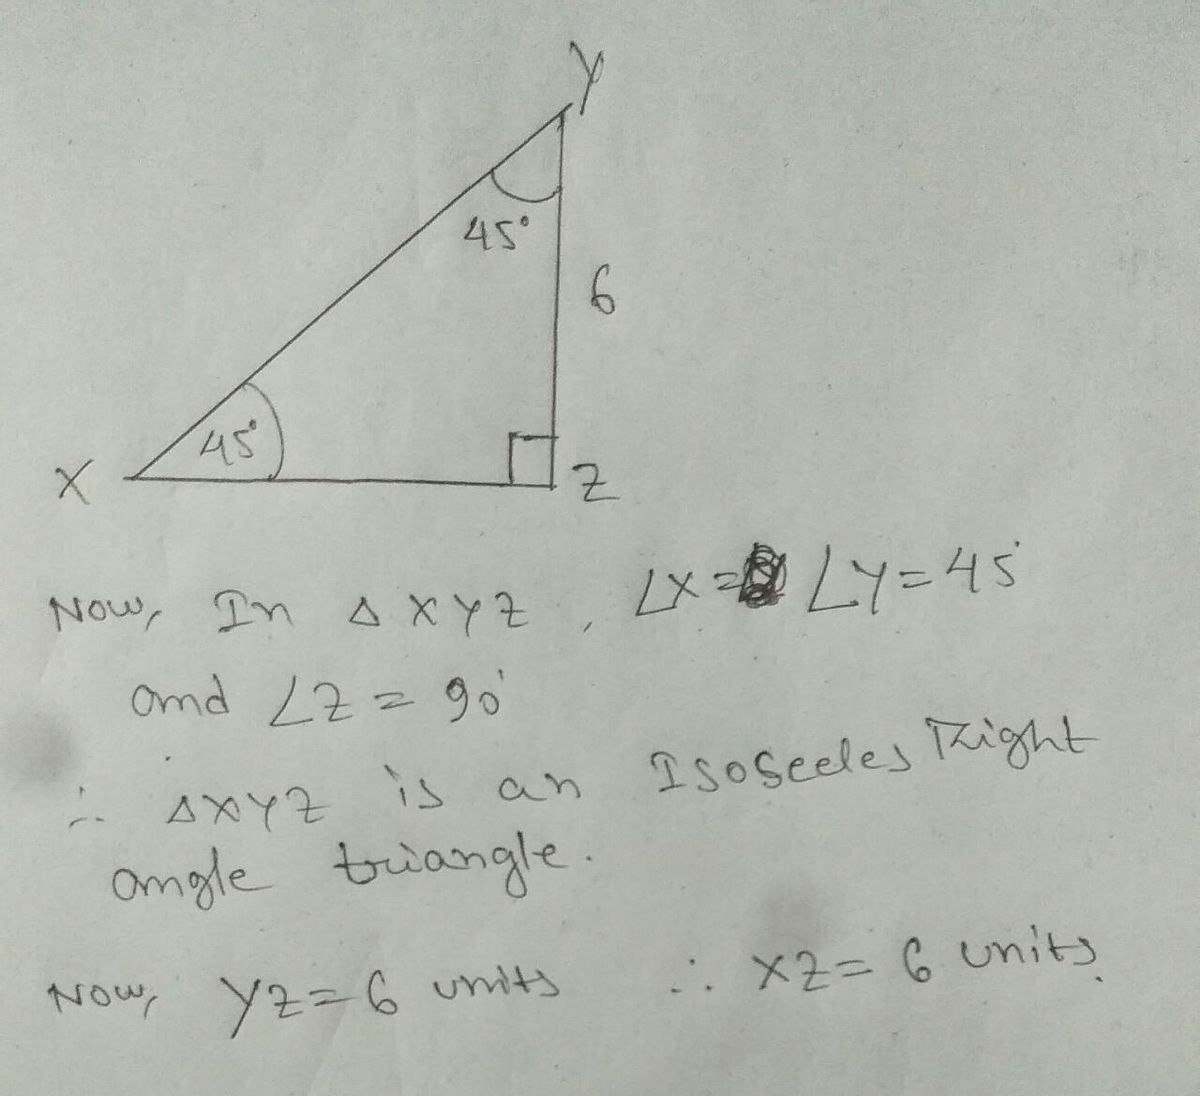 Y
45°
6
45°
X
Z
Now, In Δ XYZ, ∠X = ∠Y = 45°
and ∠Z = 90°
∴ ΔXYZ is an Isosceles Right
angle triangle.
Now, YZ = 6 units ∴ XZ = 6 units.